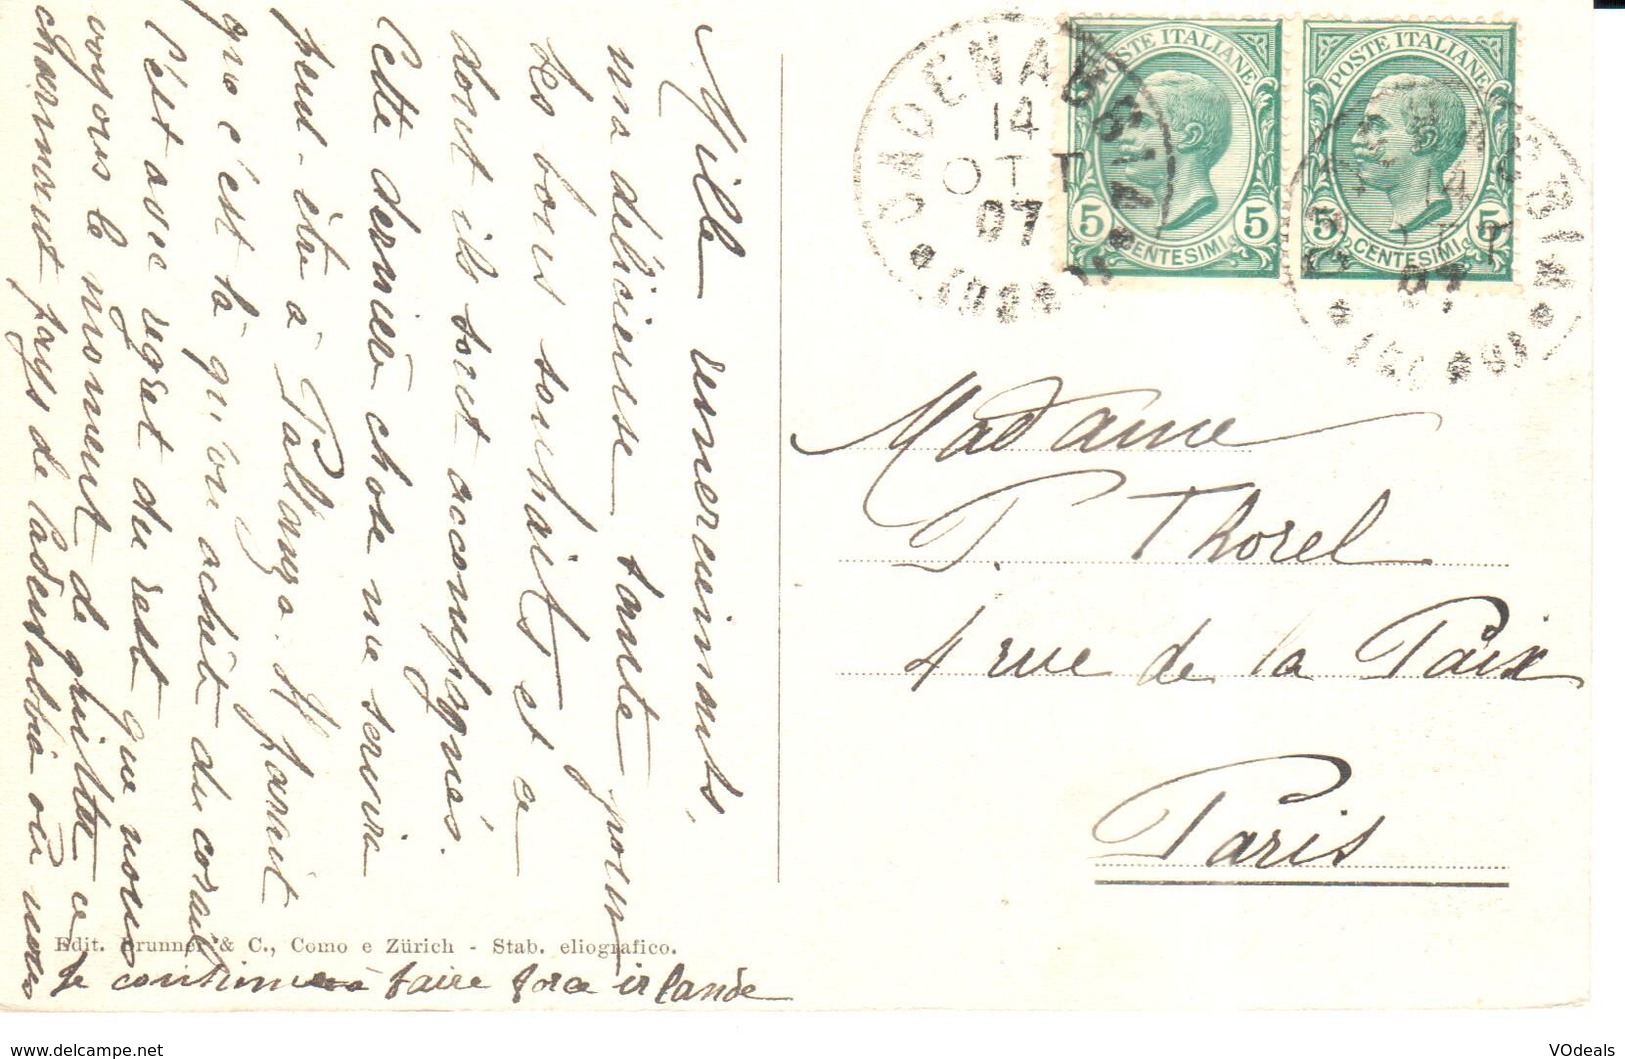 Mille remerciements,
ma délicieuse tante pour
les bons souhaits et ce
dont ils sont accompagnés.
Cette dernière chose me servira
peut-être à Pallanza. Il parait
que c'est là qu'on achète du corail
C'est avec regret du reste que nous
voyons le moment de quitter ce
charmant pays de Cadenabbia où nous
Edit. Brunner & C., Como e Zürich - Stab. eliografico.
à faire force irlande
CADENABBIA
14
OTT
07
POSTE ITALIANE
5 5
CENTESIMI
POSTE ITALIANE
5 5
CENTESIMI
07
Madame
P. Thorel
4 rue de la Paix
Paris
www.delcampe.net
VOdeals